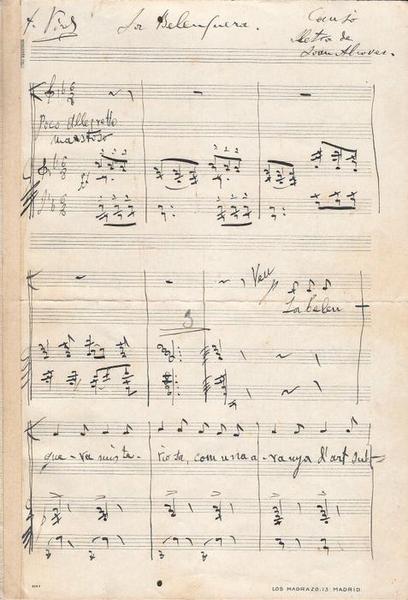 A. Vives La Balenguera. Cansó
Lletra de
Joan Alcover.
Poco Allegretto
maestoso
Veu
La balen
3
gue-ra miste-riosa, com una a-ranya d'art sub-
LOS MADRAZO, 13. MADRID